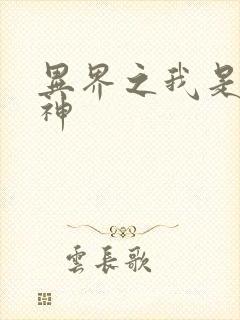 異界之我是
神
雲長歌